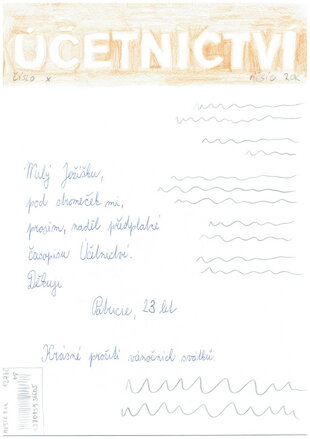 ÚČETNICTVÍ
ČÍSLO X
MĚSÍC ROK
Milý Ježíšku,
pod stromeček mi,
prosím, naděl předplatné
časopisu Účetnictví.
Děkuji
Patricie, 23 let
Krásné prožití vánočních svátků
MĚSÍC ROK